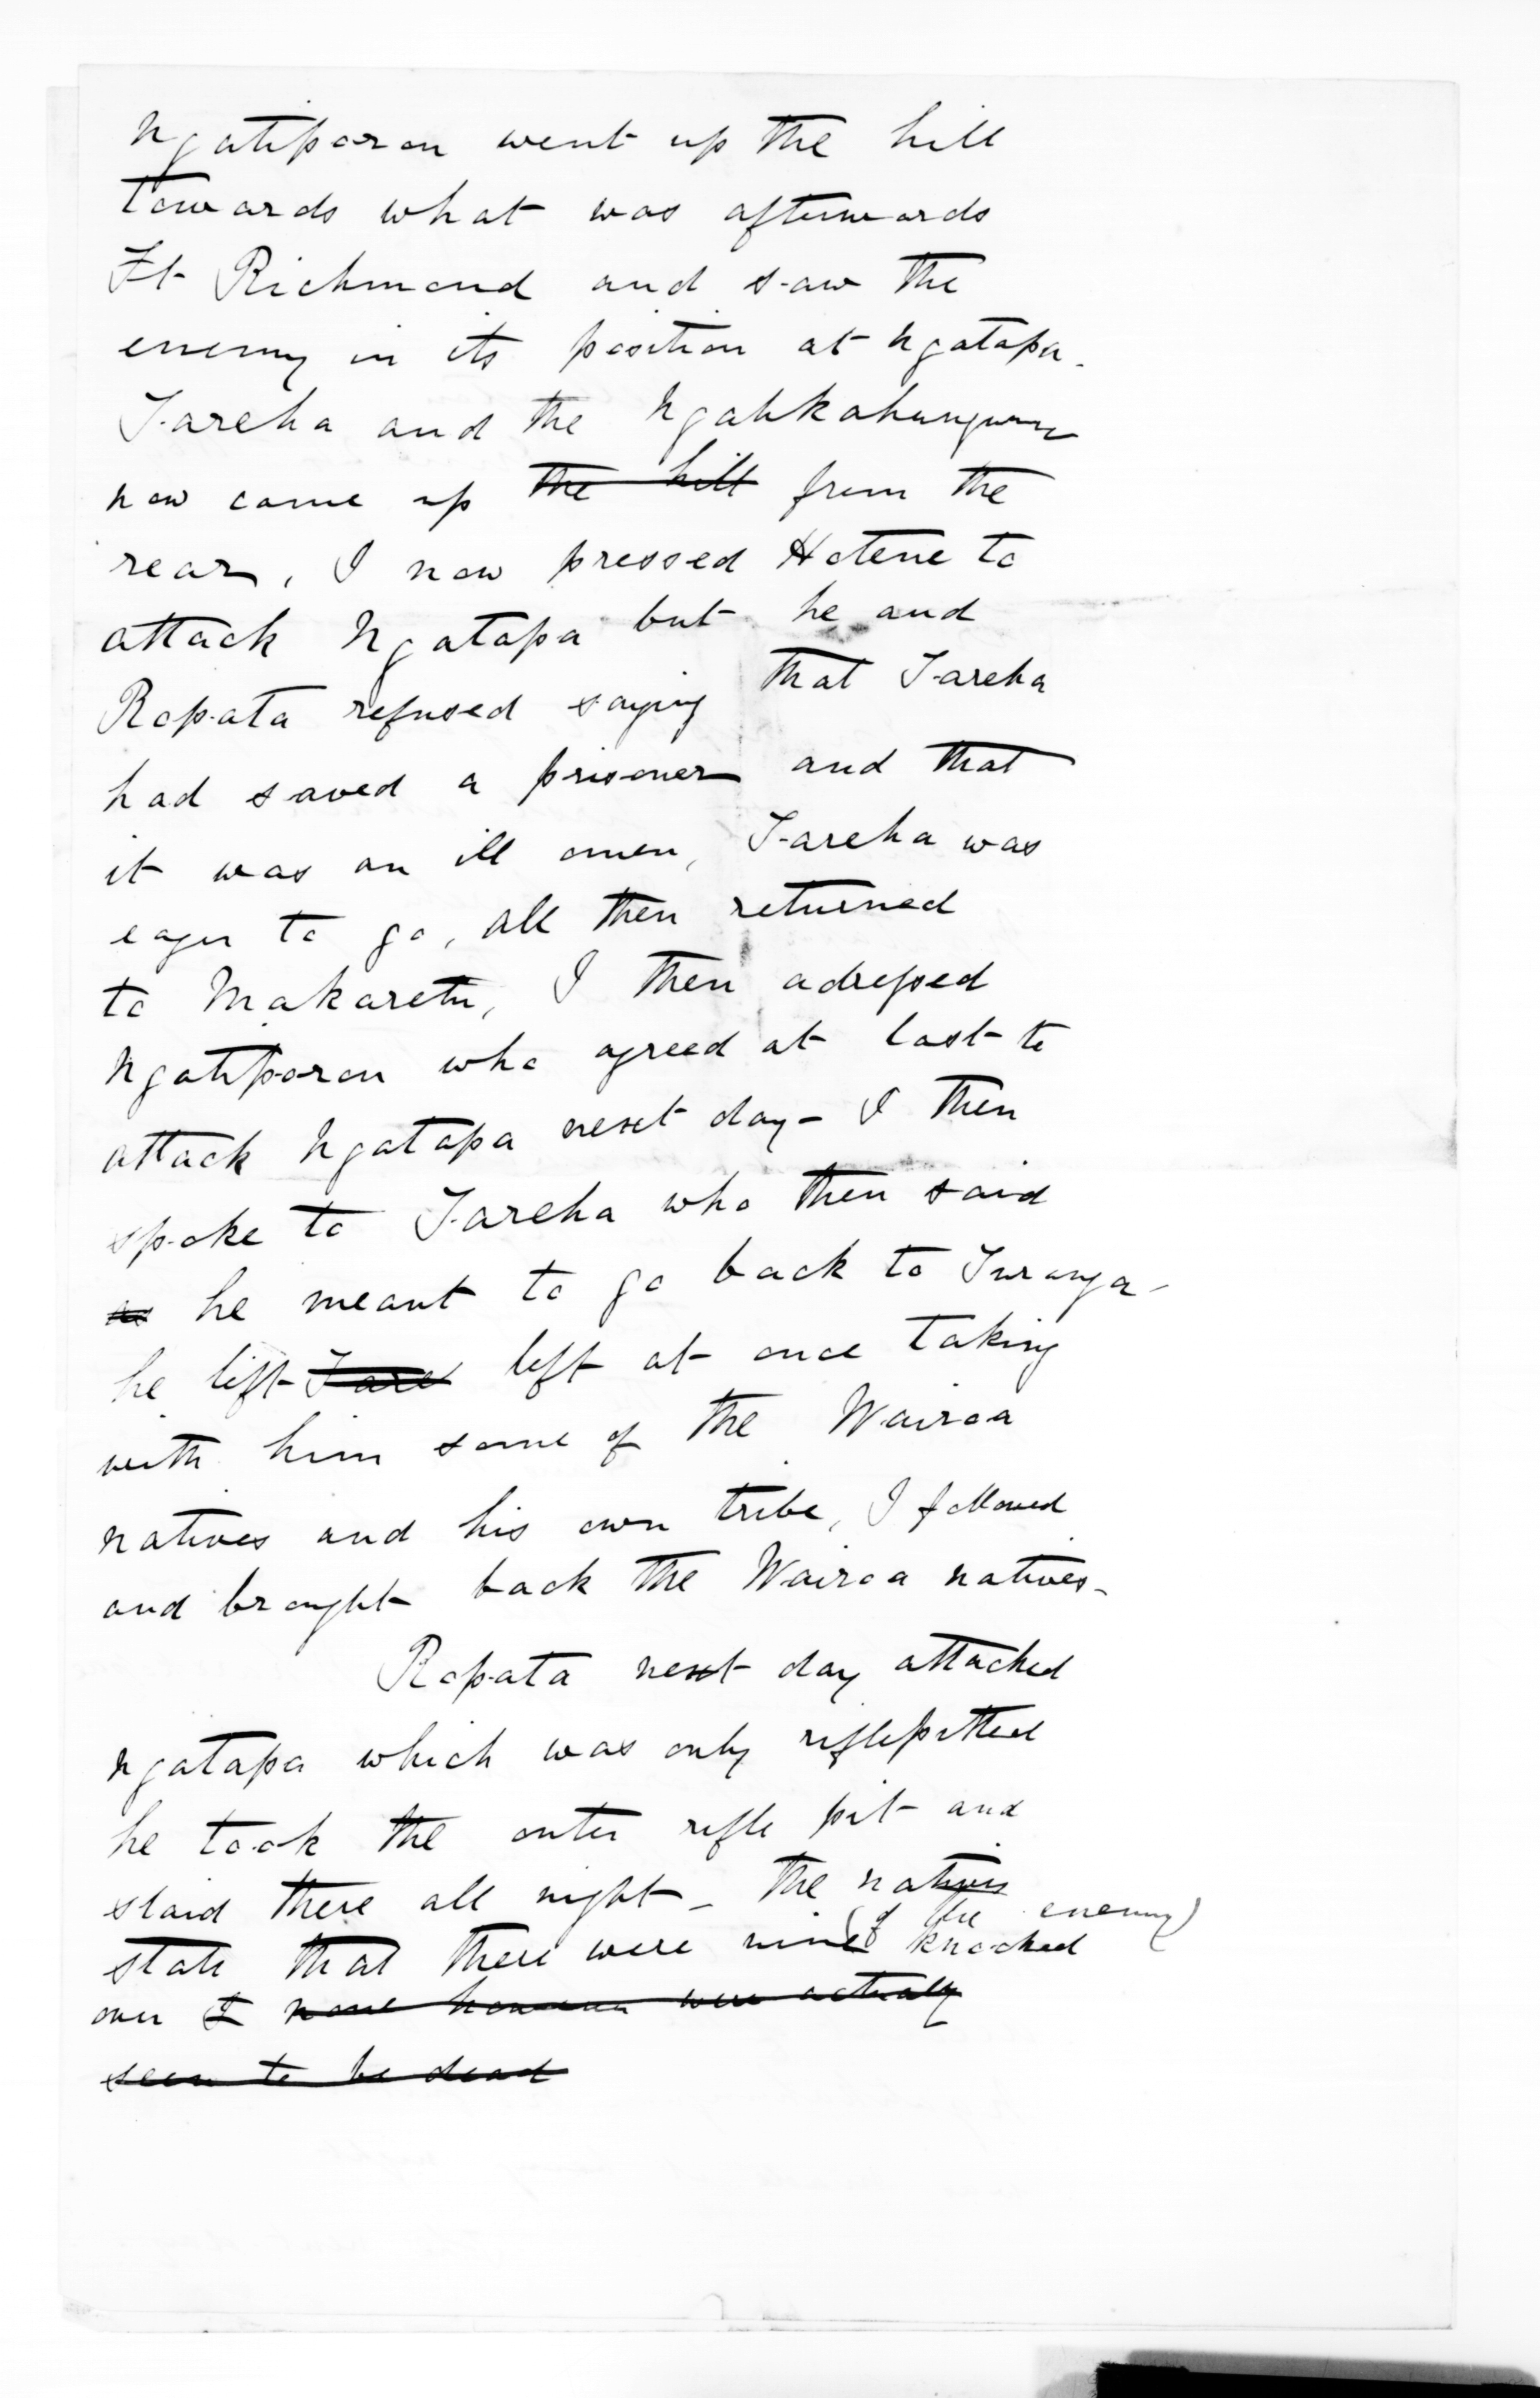 Ngatiporou went up the hill
towards what was afterwards
Ft Richmond and saw the
enemy in its position at Ngatapa.
Tareha and the Ngatikahungunu
now came up the hill from the
rear, I now pressed Hotene to
attack Ngatapa but he and
Ropata refused saying that Tareha
had saved a prisoner and that
it was an ill omen, Tareha was
eager to go, all then returned
to Makaretu, I then adressed
Ngatiporou who agreed at last to
attack Ngatapa next day - I then
spoke to Tareha who then said
he meant to go back to Turanga -
he left Tare left at once taking
with him some of the Wairoa
natives and his own tribe, I followed
and brought back the Wairoa natives -
Ropata next day attacked
Ngatapa which was only riflepitted
he took the outer rifle pit and
staid there all night - The natives
(of the enemy)
state that there were nine knocked
over I none however were actually
seen to be dead